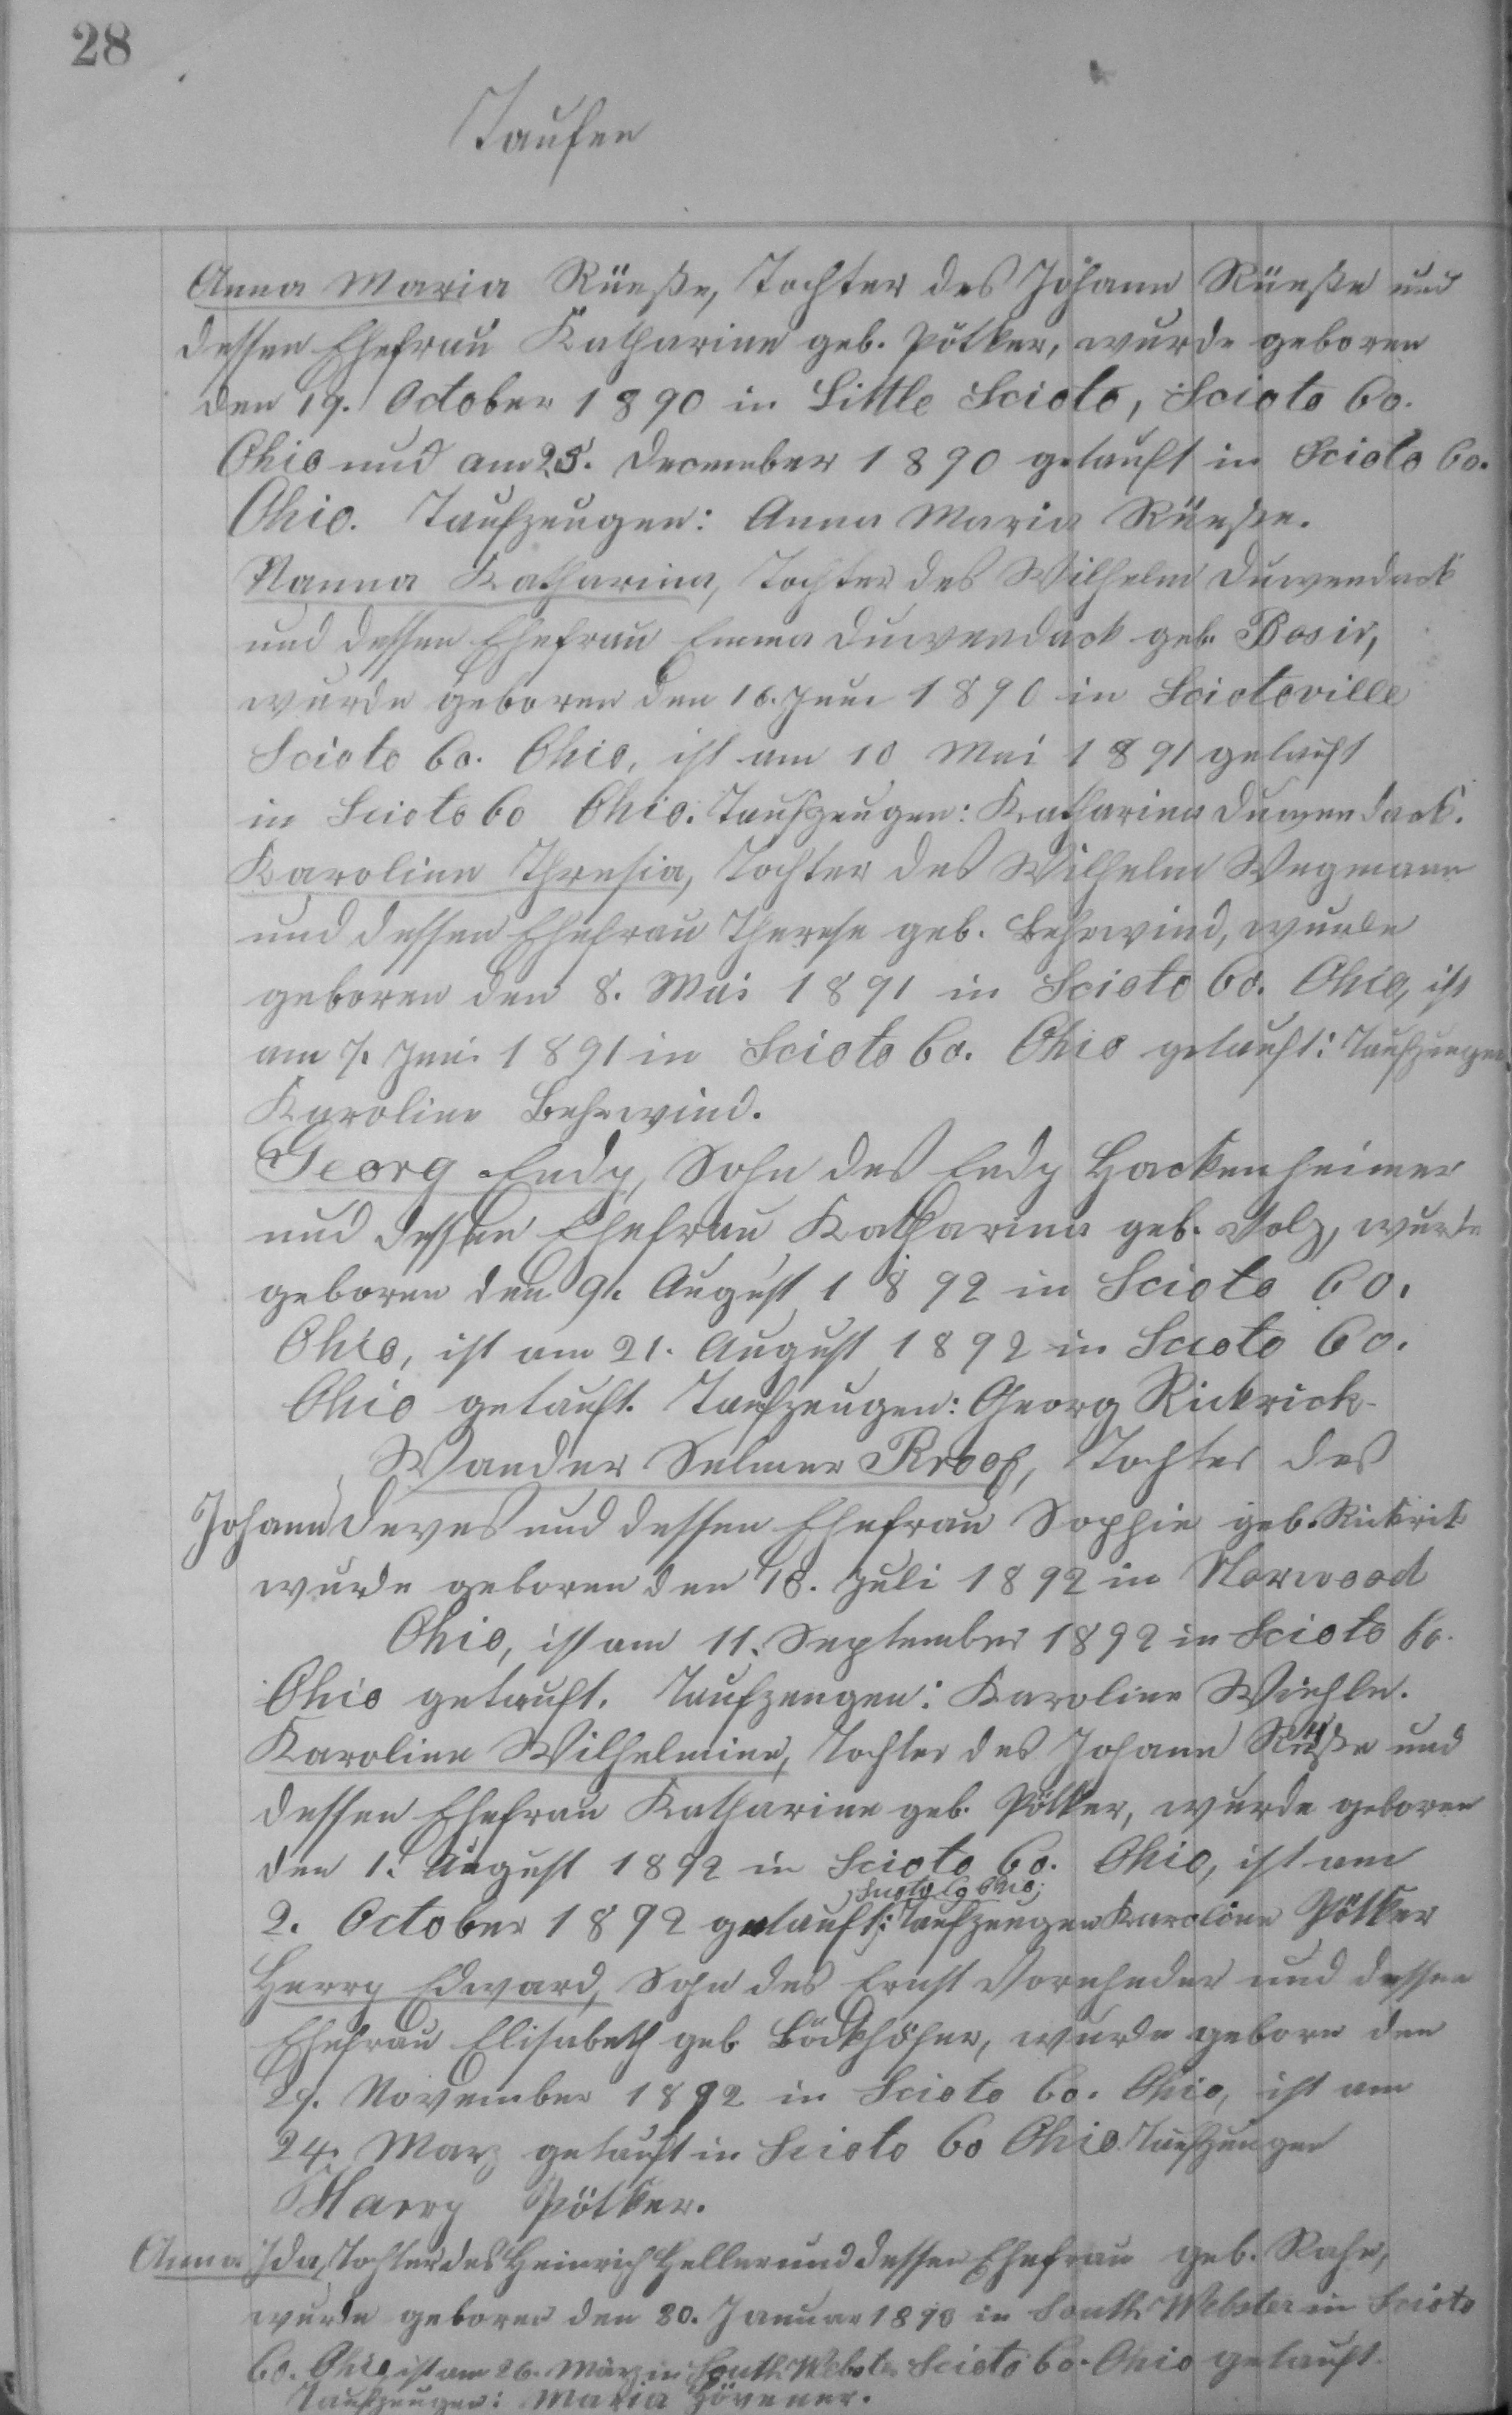 28
Taufen
Anna Maria Rüeße, Tochter des Johann Rüeße und
dessen Ehefrau Katharine geb. Pötker, wurde geboren
den 19. October 1890 in Little Scioto, Scioto Co.
Ohio und am 25. December 1890 getauft in Scioto Co.
Ohio. Taufzeugen: Anna Maria Rüeße.
Nanna Katharina, Tochter des Wilhelm Duwendack
und dessen Ehefrau Emma Duwendack geb.
wurde geboren den 16. Juni 1890 in Sciotoville
Scioto Co. Ohio, ist am 10 Mai 1891 getauft
in Scioto Co Ohio. Taufzeugen: Katharina Duwendack.
Karoline Thresia, Tochter des Wilhelm Wegmann
und dessen Ehefrau Therese geb. Behrwind, wurde
geboren den 8. Mai 1891 in Scioto Co. Ohio, ist
am 7. Juni 1891 in Scioto Co. Ohio getauft: Taufzeugen
Karoline Behrwind.
Georg Endy, Sohn des Endy Hackenheimer
und dessen Ehefrau Katharina geb. Volz, wurde
geboren den 9. August 1892 in Scioto Co.
Ohio, ist am 21. August 1892 in Scioto Co.
Ohio getauft. Taufzeugen: Georg Rickrick
Wander Selmer Tochter des
Johann Deves und dessen Ehefrau Sophie geb. Rickrik
wurde geboren den 18. Juli 1892 in Norwood
Ohio, ist am 11. September 1892 in Scioto Co.
Ohio getauft. Taufzeugen: Karoline Wiehle.
Karoline Wilhelmine, Tochter des Johann Rüeße und
dessen Ehefrau Katharine geb. Pötker, wurde geboren
den 1. August 1892 in Scioto Co. Ohio, ist am
Scioto Co Ohio;
2. October 1892 getauft: Taufzeugen Karoline Pötker
Herry Edward, Sohn des Ernst Vornheder und dessen
Ehefrau Elisabeth geb. Bödkhöfner, wurde geborn den
29. November 1892 in Scioto Co. Ohio, ist am
24. Marz getauft in Scioto Co Ohio. Taufzeugen
Harry Pötker.
Anna Ida, Tochter des Heinrich Heller und dessen Ehefrau geb. Rahe,
wurde geboren den 30. Januar 1893 in South Webster in Scioto
Co. Ohio ist am 26. März in South Webster Scioto Co. Ohio getauft.
Taufzeugen: Maria Hövener.